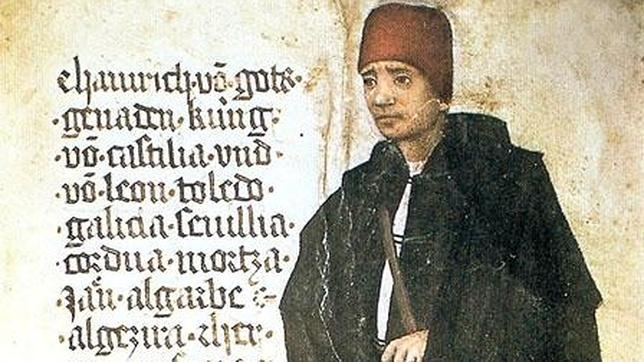 hainrich·võ·gots·
·genaden·kúng·
·võ·castilia·vnd·
·võ·leon·toledo·
·galicia·seuillia·
·cordua·mortza·
·algarbe·
·algezira·